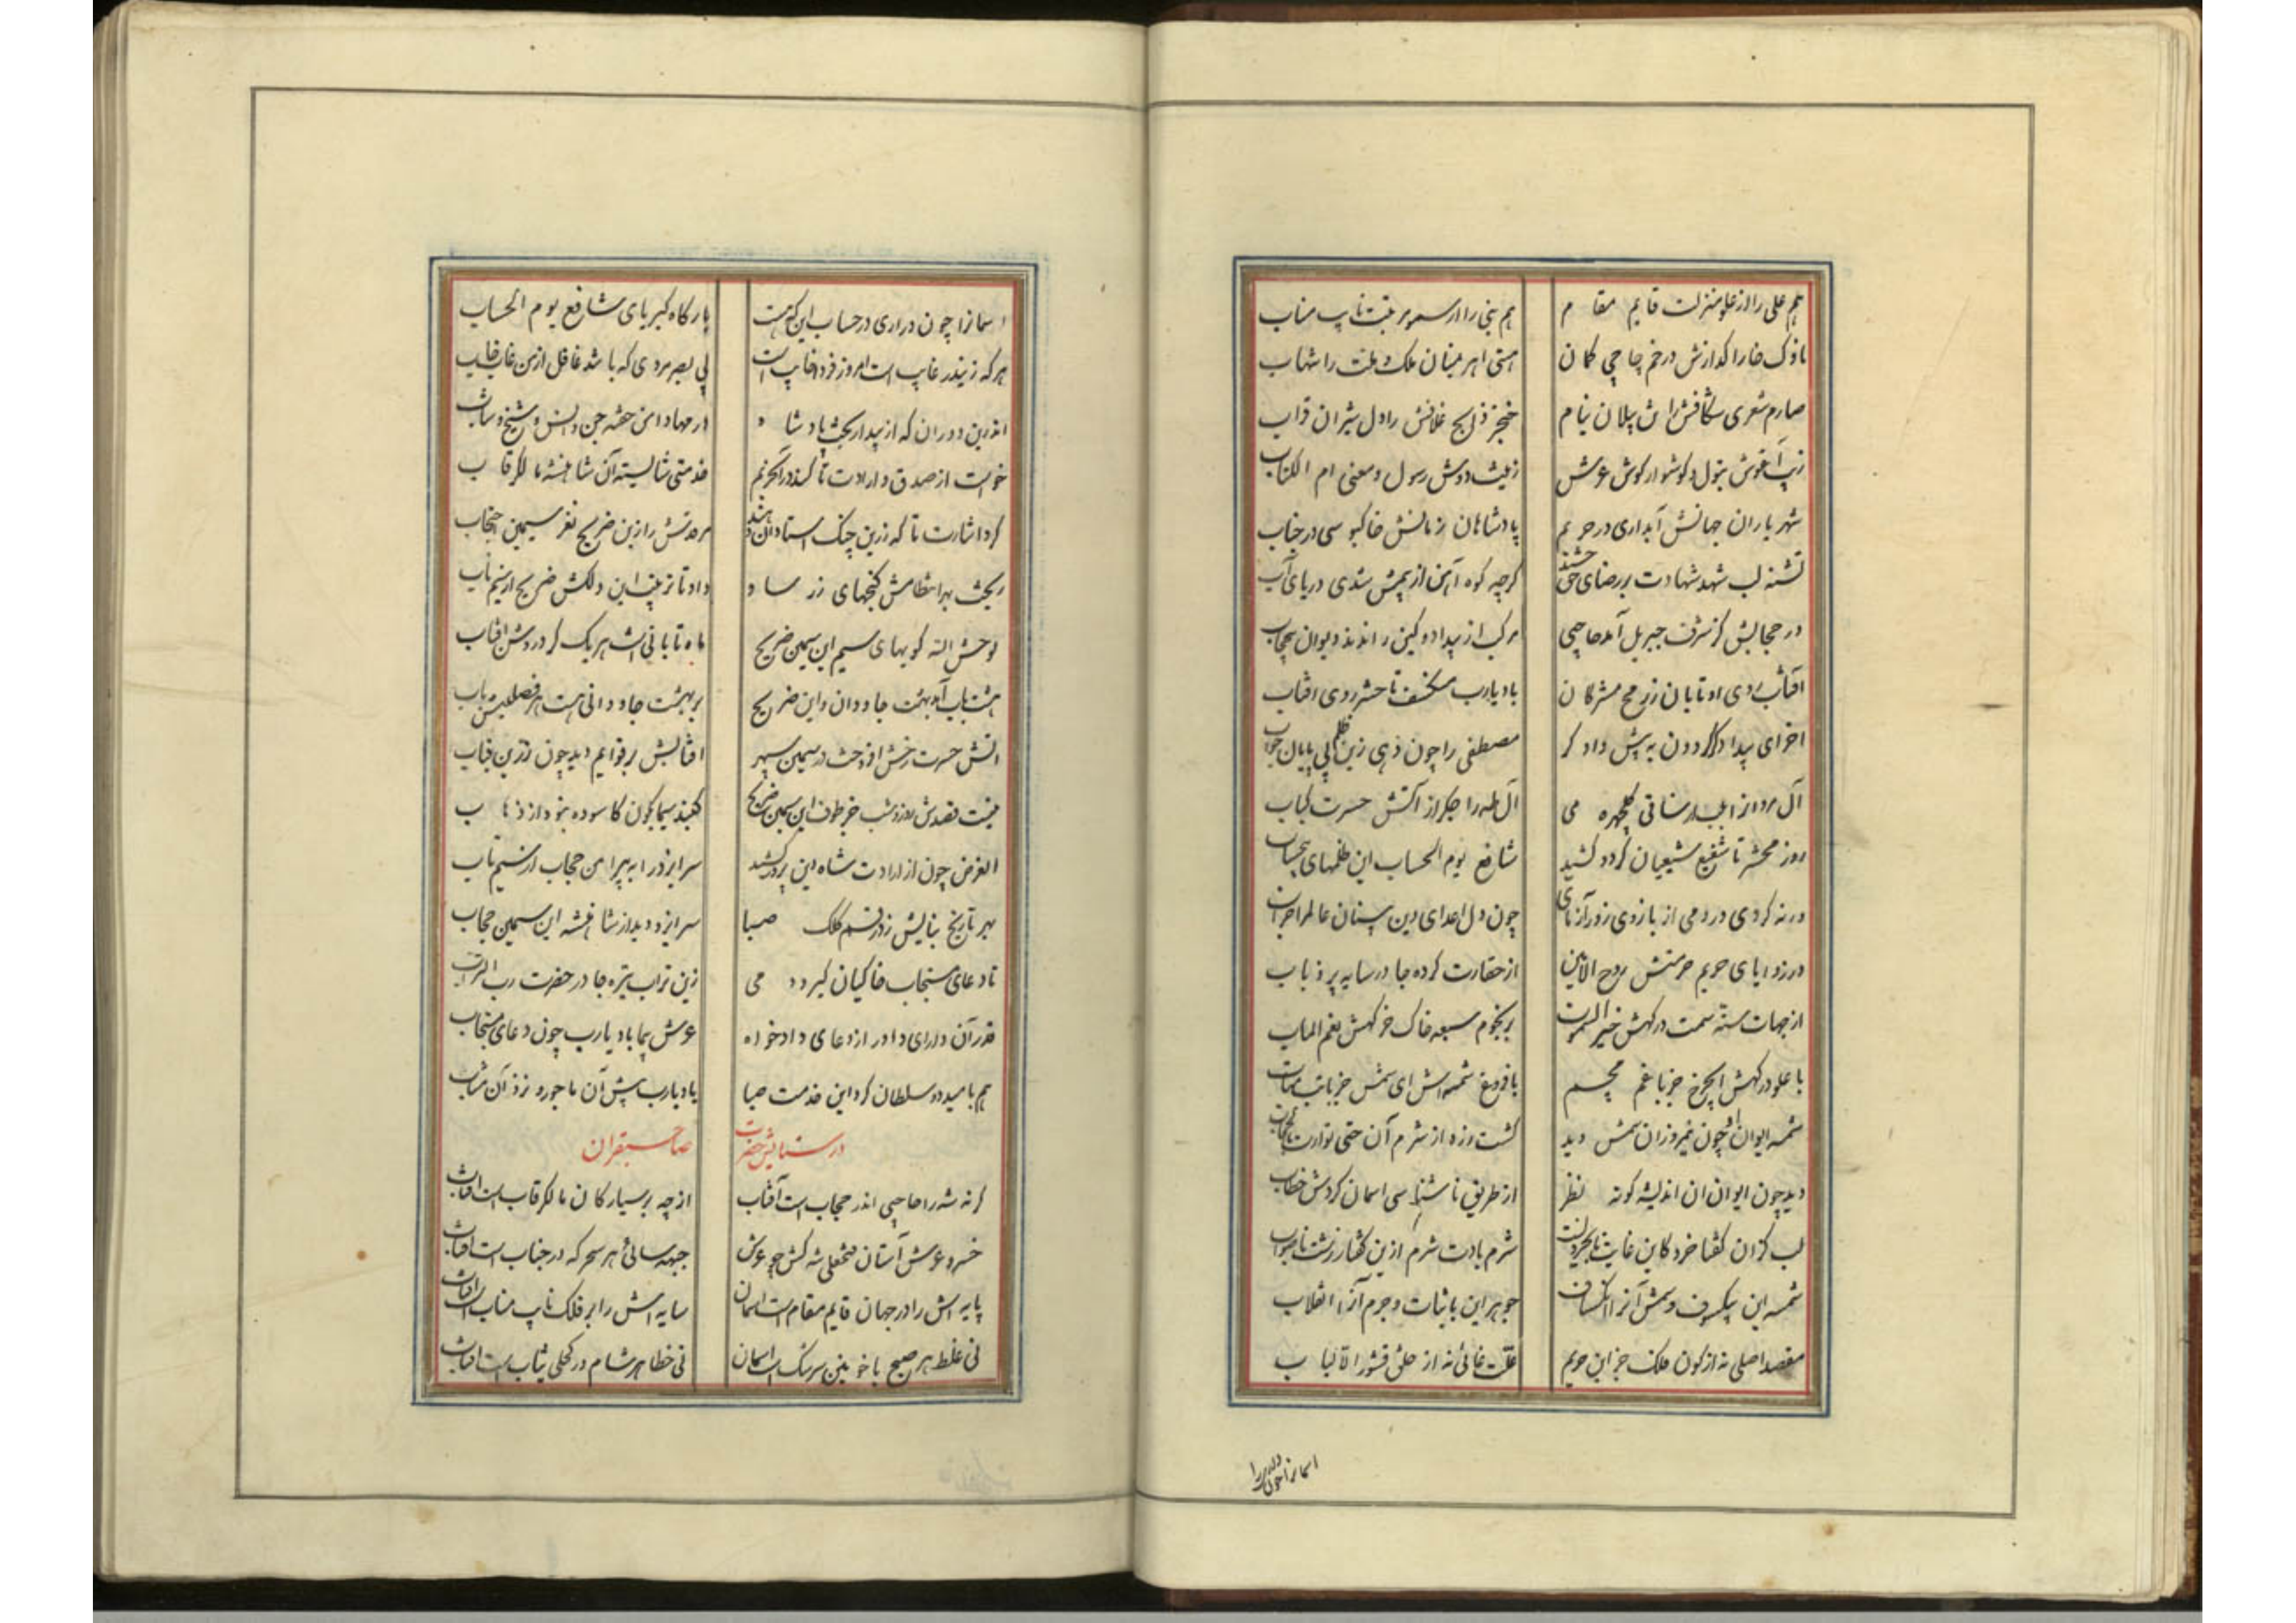 هم علی را از علو منزلت قایم مقام هم نبی را از سمو مرتبت نایب مناب
ناوک خارا گدازش در خم چاچی کمان اهرمینان ملک ملت را شهاب
صارم شعری شکافش پیلان نیام خنجر غلافش را دل شیران قراب
زیب آغوش بتول و گوشوار گوش عرش زینت دوش رسول و معنی ام الکتاب
شهریاران جهانش آبداری در حریم پادشاهان زمانش خاکبوسی در جناب
تشنه لب شهد شهادت بر رضای حق چشید گرچه کوه آهن از بیمش شدی دریای آب
در حجابش کز شرف جبریل آمد حاجبی مرکب از بیداد و کین راندند دیوان بیحجاب
آفتاب روی او تابان ز رمح مشرکان باد یارب منکسف تا حشر روی افتاب
اخر ای بیدادگر گردون به پیش دادگر مصطفی را چون دهی زین ظلم بی پایان جواب
آل مروان از ساقی گلچهره می آل طه را جگر از آتش حسرت کباب
روز محشر تا شفیع شیعیان گردد کشید شافع یوم الحساب این ظلمهای بیحساب
ورنه کردی در دمی از بازوی زورآزمای چون دل اعدای دین عالم را خراب
در زوایای حریم حرمتش روح الامین از حقارت کرده جا در سایه پر ذباب
از جهات سته سمت درگهش خیر السموت بر نجوم سبعه خاک خرگهش نعم الماب
با علو درگهش ای چرخ جز با غم مچسم با فروغ شمسه اش ای شمس جز باتب متاب
شمسه ایوان او چون نیمروزان شمس دید گشت زرد از شرم آن حتی توارت بالحجاب
دید چون ایوان ان اندیشه کوته نظر از طریق ناشناسی اسمان کردش خطاب
لب گزان گفتا خرد کاین غایت شرم بادت شرم ازین گفتار زشت ناصواب
شمسه این بیکسوف و شمس آنرا انکساف جوهر این با ثبات و جرم آنرا انقلاب
مقصد اصلی نه از کون ملک جز این حریم علت غائی نه از خلق قشور الا لباب
اسمانرا چون دراری
اسمانرا چون دراری در حساب این که هست بارگاه کبریای شافع یوم الحساب
هرکه زیندر غایب است امروز فردا خایب است بی بصر مردی که باشد غافل ازین
اندرین دوران که از بیدار بخت پادشاه در مهاد امن خفته جن و انس و شیخ و شاب
خواست از صدق و ارادت تا کند در خدمتی شایسته آن شاهنشه مالک رقاب
کرد اشارت تا که زرین چنگ استادان نهند مرقدش را زین ضریح نغز سیمین حجاب
ریخت بهر انتظامش گنجهای زر ساو داد تا ترتیب این دلکش ضریح از سیم ناب
لوحش الله گویهای سیم این سیمین ضریح ماه تابانی است هر یک گرد روشن افتاب
هشت باب آمد بهشت جاودان و این ضریح بر بهشت جاودانی هست هر فصلیش باب
اتش حسرت رخش افروخت در سیمین سپهر افتابش بر قوایم دید چون زرین قباب
نیست قصدش روز و شب جز طوف این سیمین ضریح گنبد سیمابگون کاسوده نبود از ذهاب
الغرض چون از ارادت شاه دین پرور کشید سر ایزد را به پیرامن حجاب از سیم ناب
بهر تاریخ بنایش زد رقم کلک صبا سر ایزد دید از شاهنشه این سیمین حجاب
تا دعای مستجاب خاکیان گیرد همی زین تراب تیره جا در حضرت رب التراب
قدر آن دارای داور از دعای دادخواه عرش پیما باد یارب چون دعای مستجاب
هم بامید دو سلطان کرد این خدمت صبا باد یارب پیش آن ماجور و نزد آن مثاب
در ستایش حضرت صاحبقران
گر نه شه را حاجبی اندر حجاب است آفتاب از چه بر سیارکان مالک رقاب است افتاب
خسرو عرش آستان فتحعلی شه کش چو عرش جبهه سائی هر سحرگه در جناب است افتاب
پایه اش را در جهان قایم مقام است اسمان سایه اش را بر فلک نایب مناب است افتاب
نی غلط هر صبح با خونین سرشک است اسمان نی خطا هر شام در کحلی ثیاب است افتاب